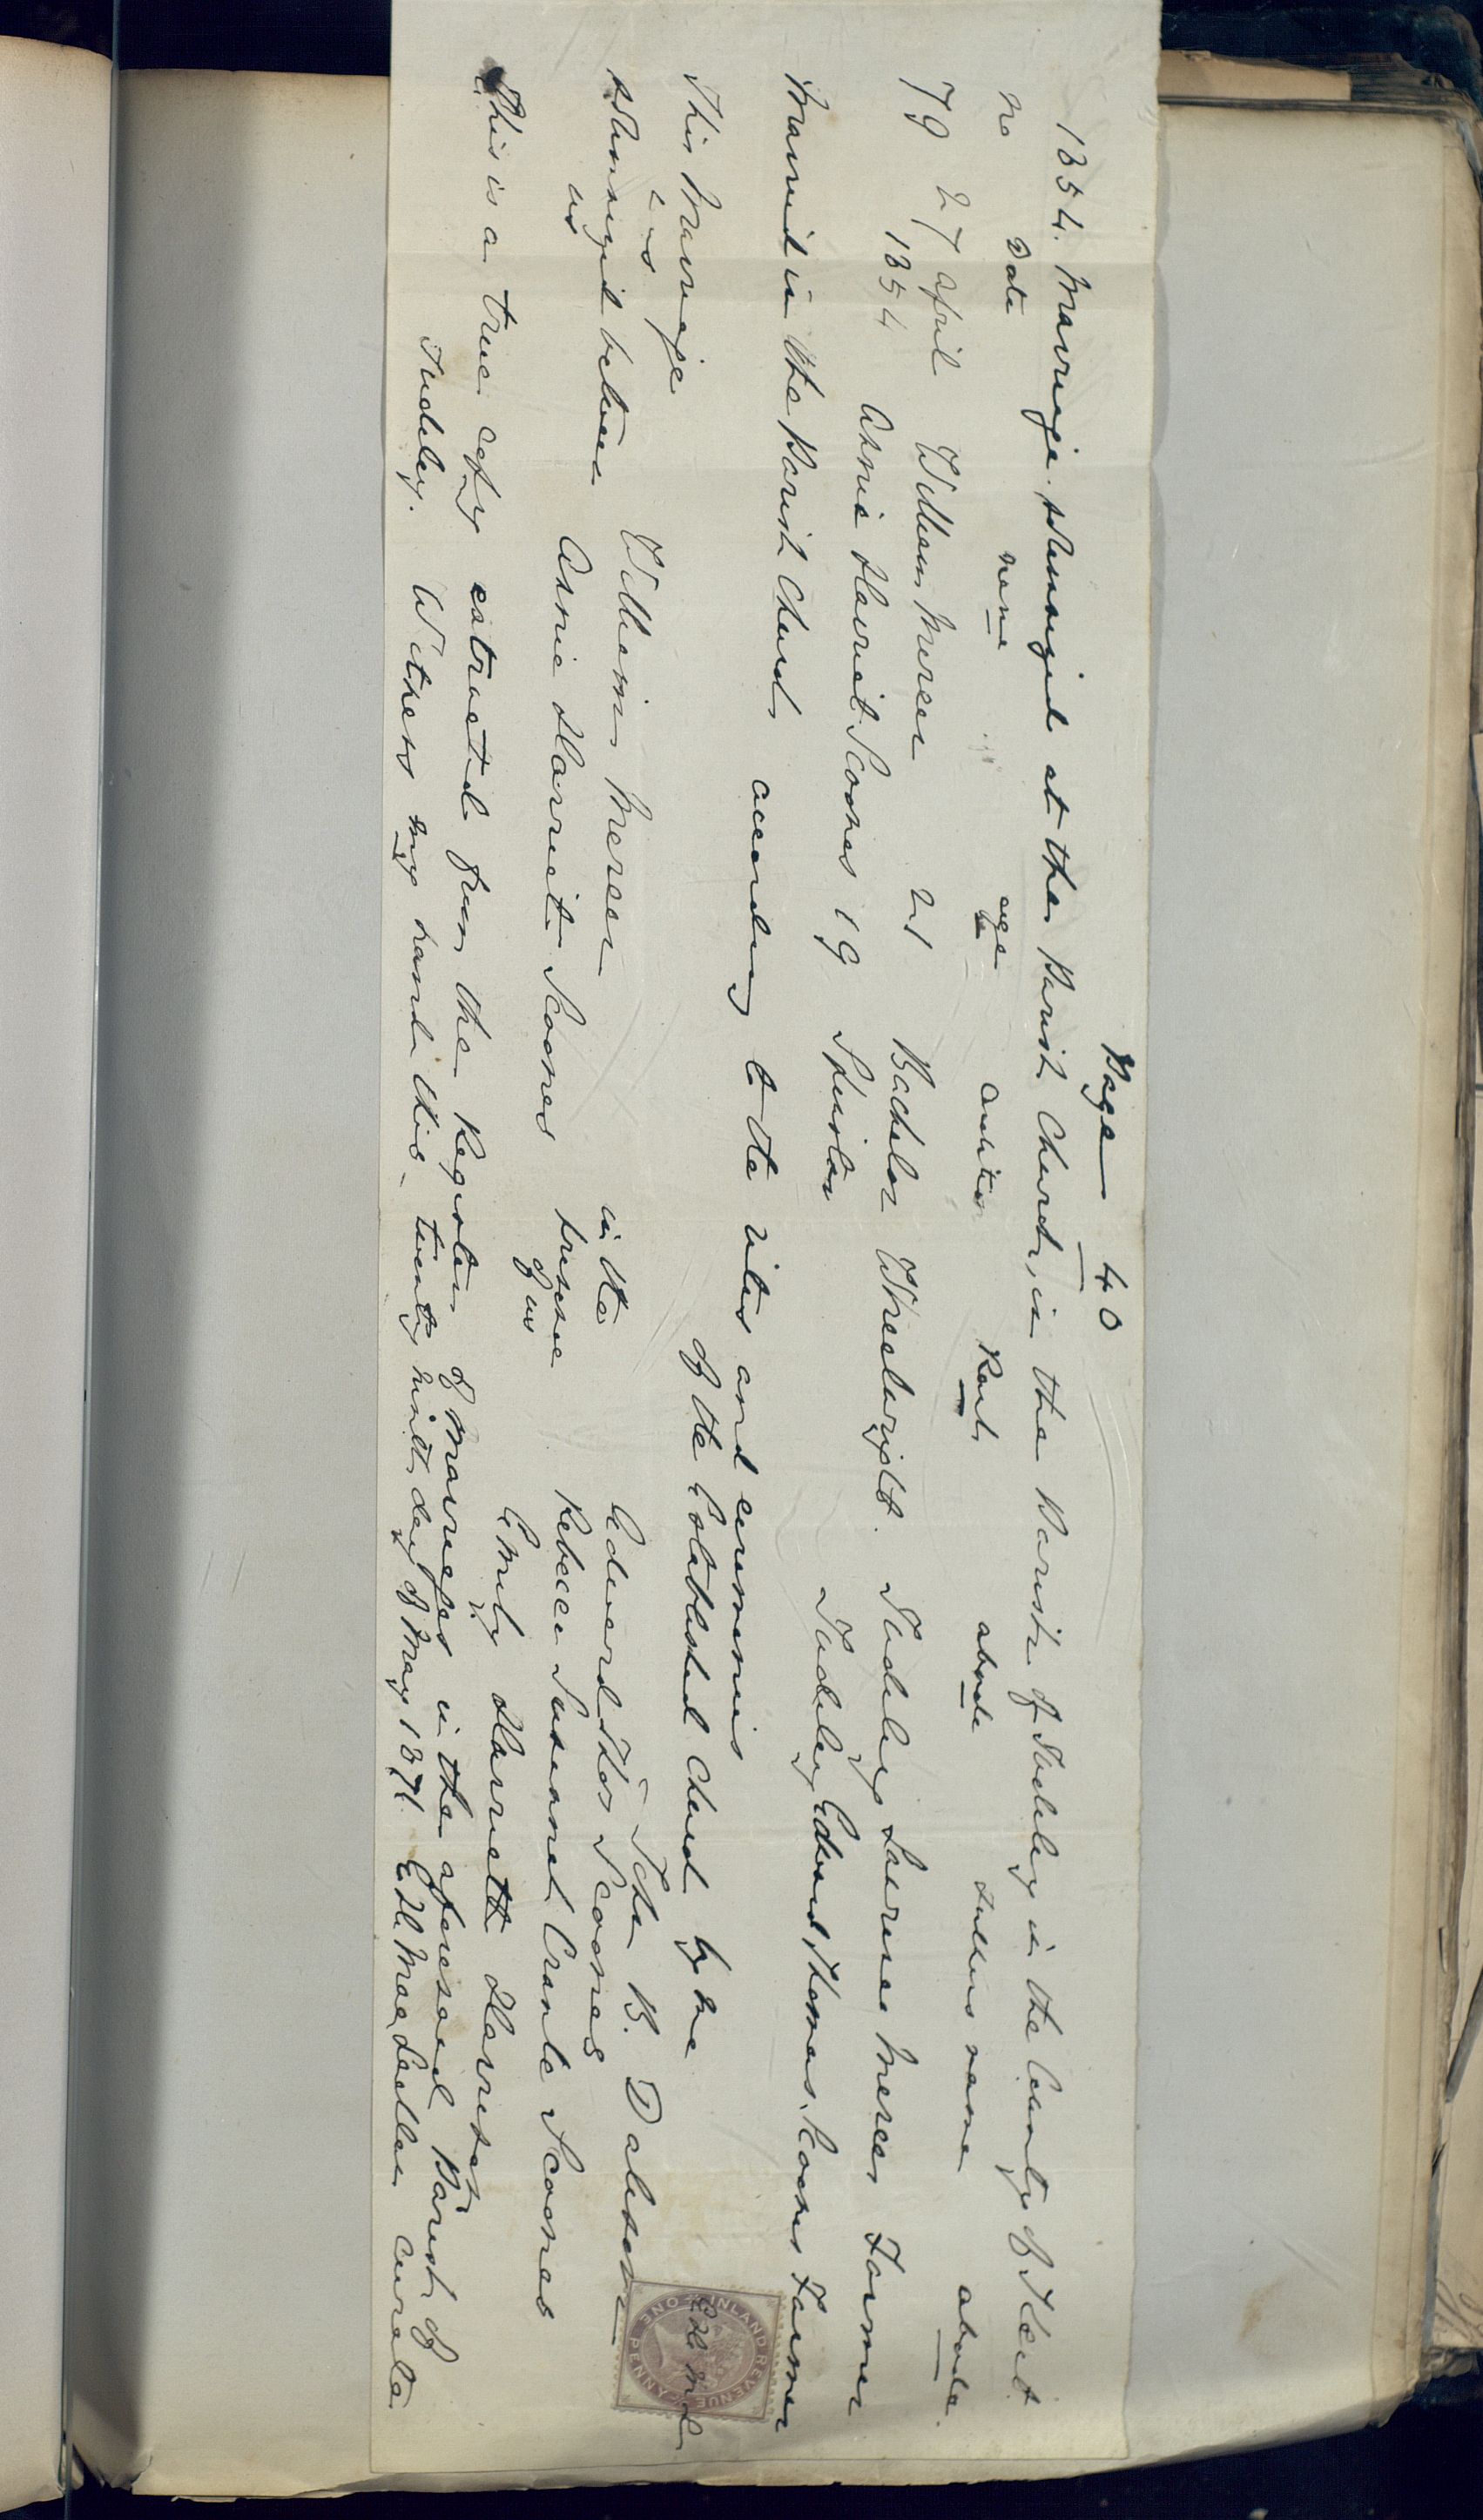 Page 40
1854. Marriage solemnized at the Parish Church, in the Parish of Tudeley in the County of Kent
No Date name age condition Rank abode Fathers name abode
79 27 April 1854 William Mercer 21 Bachelor Wheelwright. Tudeley Mercer Farmer
Annie Harriet Scoones 19 Spinster Tudeley Edward Thomas Scoones Farmer
Married in the Parish Church according to the rites and ceremonies
of the Established Church by me
John B. Dalison
This Marriage was
solemnized between us
William Mercer
Annie Harriet Scoones
in the presence of us
Edward Thos Scoones
Rebecca Susannah Scoones
Emily Harriett
This is a true copy extracted from the Register of Marriages in the aforesaid Parish of
Tudeley. Witness my hand this twenty ninth day of May 1871. Curate
INLAND REVENUE
ONE PENNY